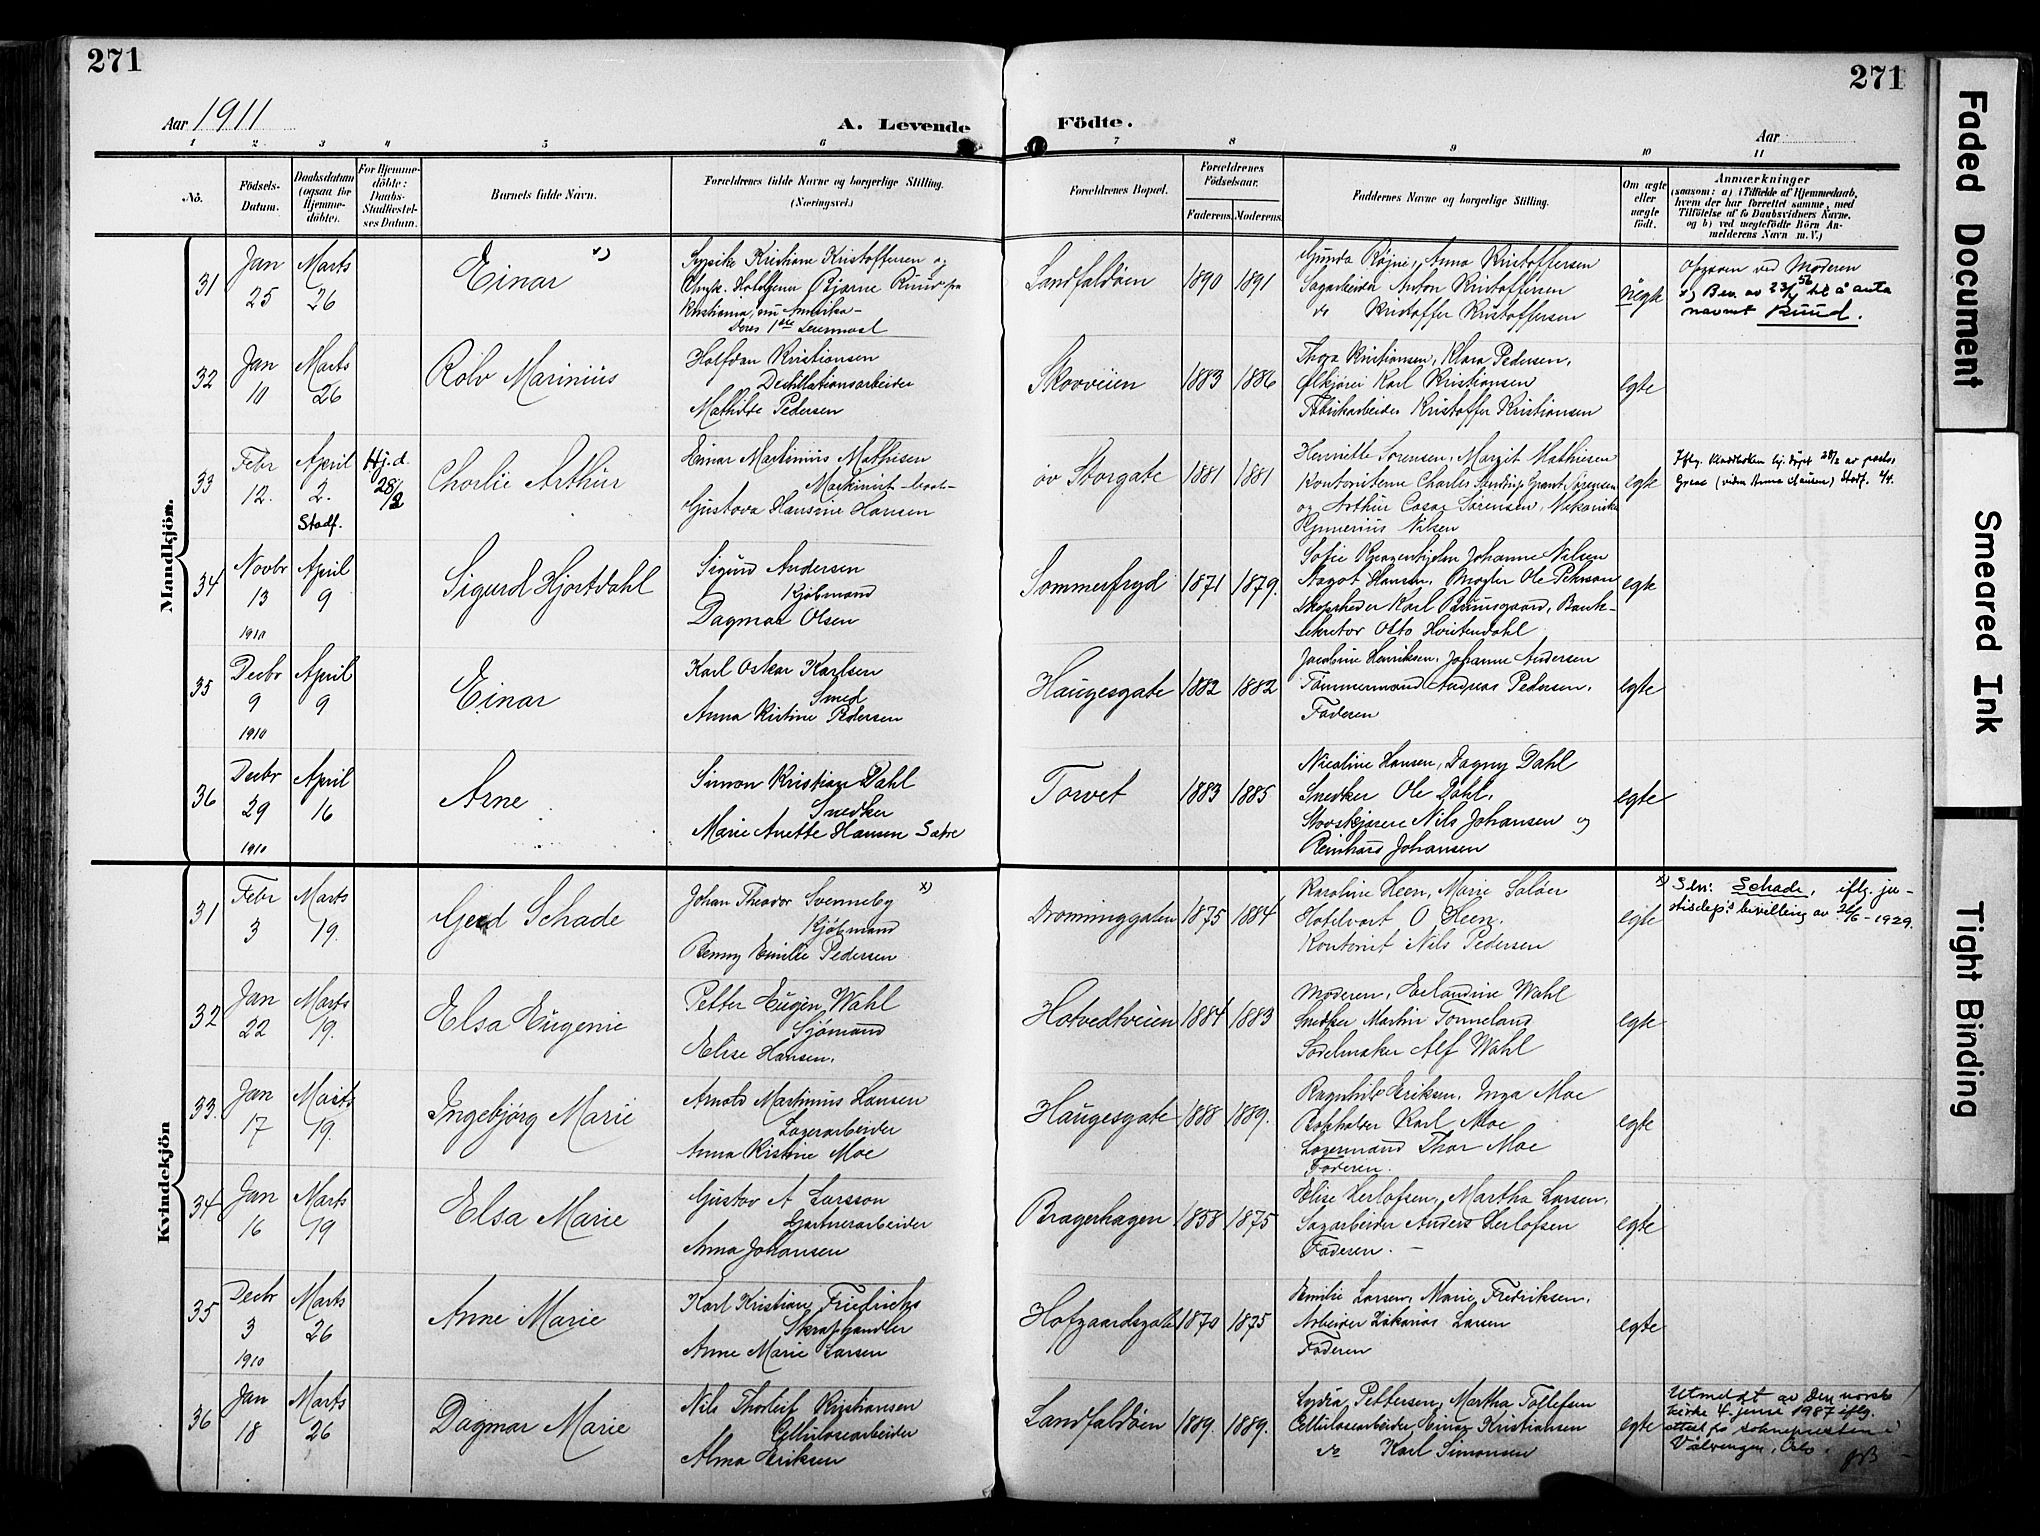 271
271
Aar 1911
A. Levende
Födte.
Aar
1 2 3 4 5 6 7 8 9 10 11
No.
Födsels-
Datum.
Daabsdatum
(ogsaa for
Hjemme-
döbte).
For Hjemme-
döbte:
Daabs-
Stadfæstel-
ses Datum.
Barnets fulde Navn.
Forældrenes fulde Navne og borgerlige Stilling.
(Næringsvei.)
Forældrenes Bopæl.
Forældrenes
Födselsaar.
Faderens. Moderens.
Faddernes Navne og borgerlige Stilling.
Om ægte
eller
uægte
født.
Anmærkninger
(saasom: a) i Tilfælde af Hjemmedaab,
hvem der har forrettet samme, med
Tilföielse af to Daabsvidners Navne,
og b) ved uægtefödte Börn An-
melderens Navn m. V.)
Mandkjön.
31
Jan
25
Marts
26
Einar x)
Kristiane Kristoffersen og
Bjarne Ruud fra
Kristiania, nu Amerika-
Deres 1ste Leiermaal
Landfaldöen
1890 1891
Gunda Röine, Anna Kristoffersen
Sagarbeider Anton Kristoffersen
do Kristoffer Kristoffersen
uegte
Opgaven ved Moderen
x) Bev. av til å anta
navnet Ruud.
32
Jan
10
Marts
26
Rolv Marinius
Halfdan Kristiansen
Destillationsarbeider
Mathilde Pedersen
Skovveien
1883 1886
Thora Kristiansen, Klara Pedersen,
Ølkjörer Karl Kristiansen
Fabrikarbeider Kristoffer Kristiansen
egte
33
Febr
12.
April
2.
Stadf.
Hj. d.
28/2
Charlie Arthur
Einar Martinius Mathisen
Maskinist
Gustava Hansine Hansen
öv Storgate
1881 1881
Henriette Sörensen, Margit Mathiesen
Kontoristerne Charles Grant Sörensen
og Arthur Cæsar Sörensen, Mekaniker
Nilsen
egte
Iflg. kladdboken hj. döpt 28/2 av pastor
Græe (vidne Anna Hansen) Stadf. 2/4.
34
Novbr
13
1910
April
9
Sigurd Hjortdahl
Sigurd Andersen
Kjöbmand
Dagmar Olsen
Sommerfryd
1871 1879.
Sofie Johanne Nilsen
Dagot Hansen, Mægler Ole Pehrson
Karl Bruusgaard, Bank-
sekretær Otto
egte
35
Decbr
9
1910
April
9
Einar
Karl Oskar Karlsen
Smed
Anna Kristine Pedersen
Haugesgate
1882 1882
Jacobine Henriksen, Johanne Andersen
Tömmermand Andreas Pedersen,
Faderen
egte
36
Decbr
29
1910
April
16
Arne
Simon Kristian Dahl
Snedker
Marie Anette Hansen Sætre
Torvet
1883 1885
Nicoline Hansen, Dagny Dahl
Snedker Ole Dahl,
Nils Johansen og
Reinhard Johansen
egte
Kvindekjön
31
Febr
3
Marts
19.
Gerd Schade
Johan Theodor Svenneby x)
Kjöbmand
Benny Emilie Pedersen
Dronninggaten
1875 1884
Karoline Heen, Marie Solöer
Hotelvært O Heen,
Kontorist Nils Pedersen
egte
x) Sln: Schade, iflg. ju-
stisdep.s bevilling av 26/6-1929.
32
Jan
22
Marts
19.
Elsa Eugenie
Petter Eugen Wahl
Sjömand
Elise Hansen.
Hotvedtveien
1884 1883
Moderen, Erlandine Wahl
Snedker Martin Tonneland
Sadelmaker Alf Wahl
egte
33.
Jan
17
Marts
19.
Ingebjörg Marie
Arnold Martinius Hansen
Lagerarbeider
Anna Kristine Moe
Haugesgate
1888 1889.
Ragnhild Eriksen, Inga Moe
Bokholder Karl Moe
Lagermand Thor Moe
Faderen.
egte
34
Jan
16
Marts
19
Elsa Marie
Gustav A Larsson
Gartnerarbeider
Anna Johansen
Bragerhagen
1858 1875
Elise Herlofsen, Martha Larsen,
Sagarbeider Anders Herlofsen
Faderen.
egte
35
Decbr
3
1910
Marts
26
Anne Marie
Karl Kristian Friedrichs
Skraphandler
Anne Marie Larsen
Hofgaardsgate
1870 1875
Emilie Larsen, Marie Fredriksen,
Arbeider Zakarias Larsen
Faderen
egte
36
Jan
18
Marts
26
Dagmar Marie
Nils Thorleif Kristiansen
Cellulosearbeider
Alma Eriksen
Landfaldöen
1889. 1889.
Lydia Pettersen, Martha Tollefsen
Cellulosearbeider Einar Kristiansen
do Karl Simonsen
egte
Utmeldt av Den norske
kirke 4. juni 1987 iflg.
attest fra sokneprestene i
Vålerengen, Oslo.
Faded Document
Smeared Ink
Tight Binding